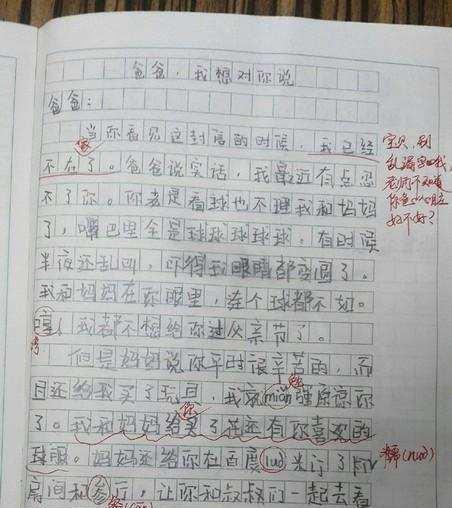 爸爸，我想对你说
爸爸：
当你看见这封信的时候，我已经
不在了。爸爸说实话，我最近有点忍
不了你。你老是看球也不理我和妈妈
了，嘴巴里全是球球球球球。有时候
半夜还乱叫，吓得我眼睛都变圆了。
我和妈妈在你眼里，连个球都不如。
我都不想给你过父亲节了。
但是妈妈说你平时很辛苦的，而
且还给我买了玩具，我就miǎn强原谅你
勉
了。我和妈妈给你买了花还有你喜欢的
球服。妈妈还给你在百度nuò米订了
诺(nuò)
房间和 厅，让你和叔叔们一起去看
宝贝，别